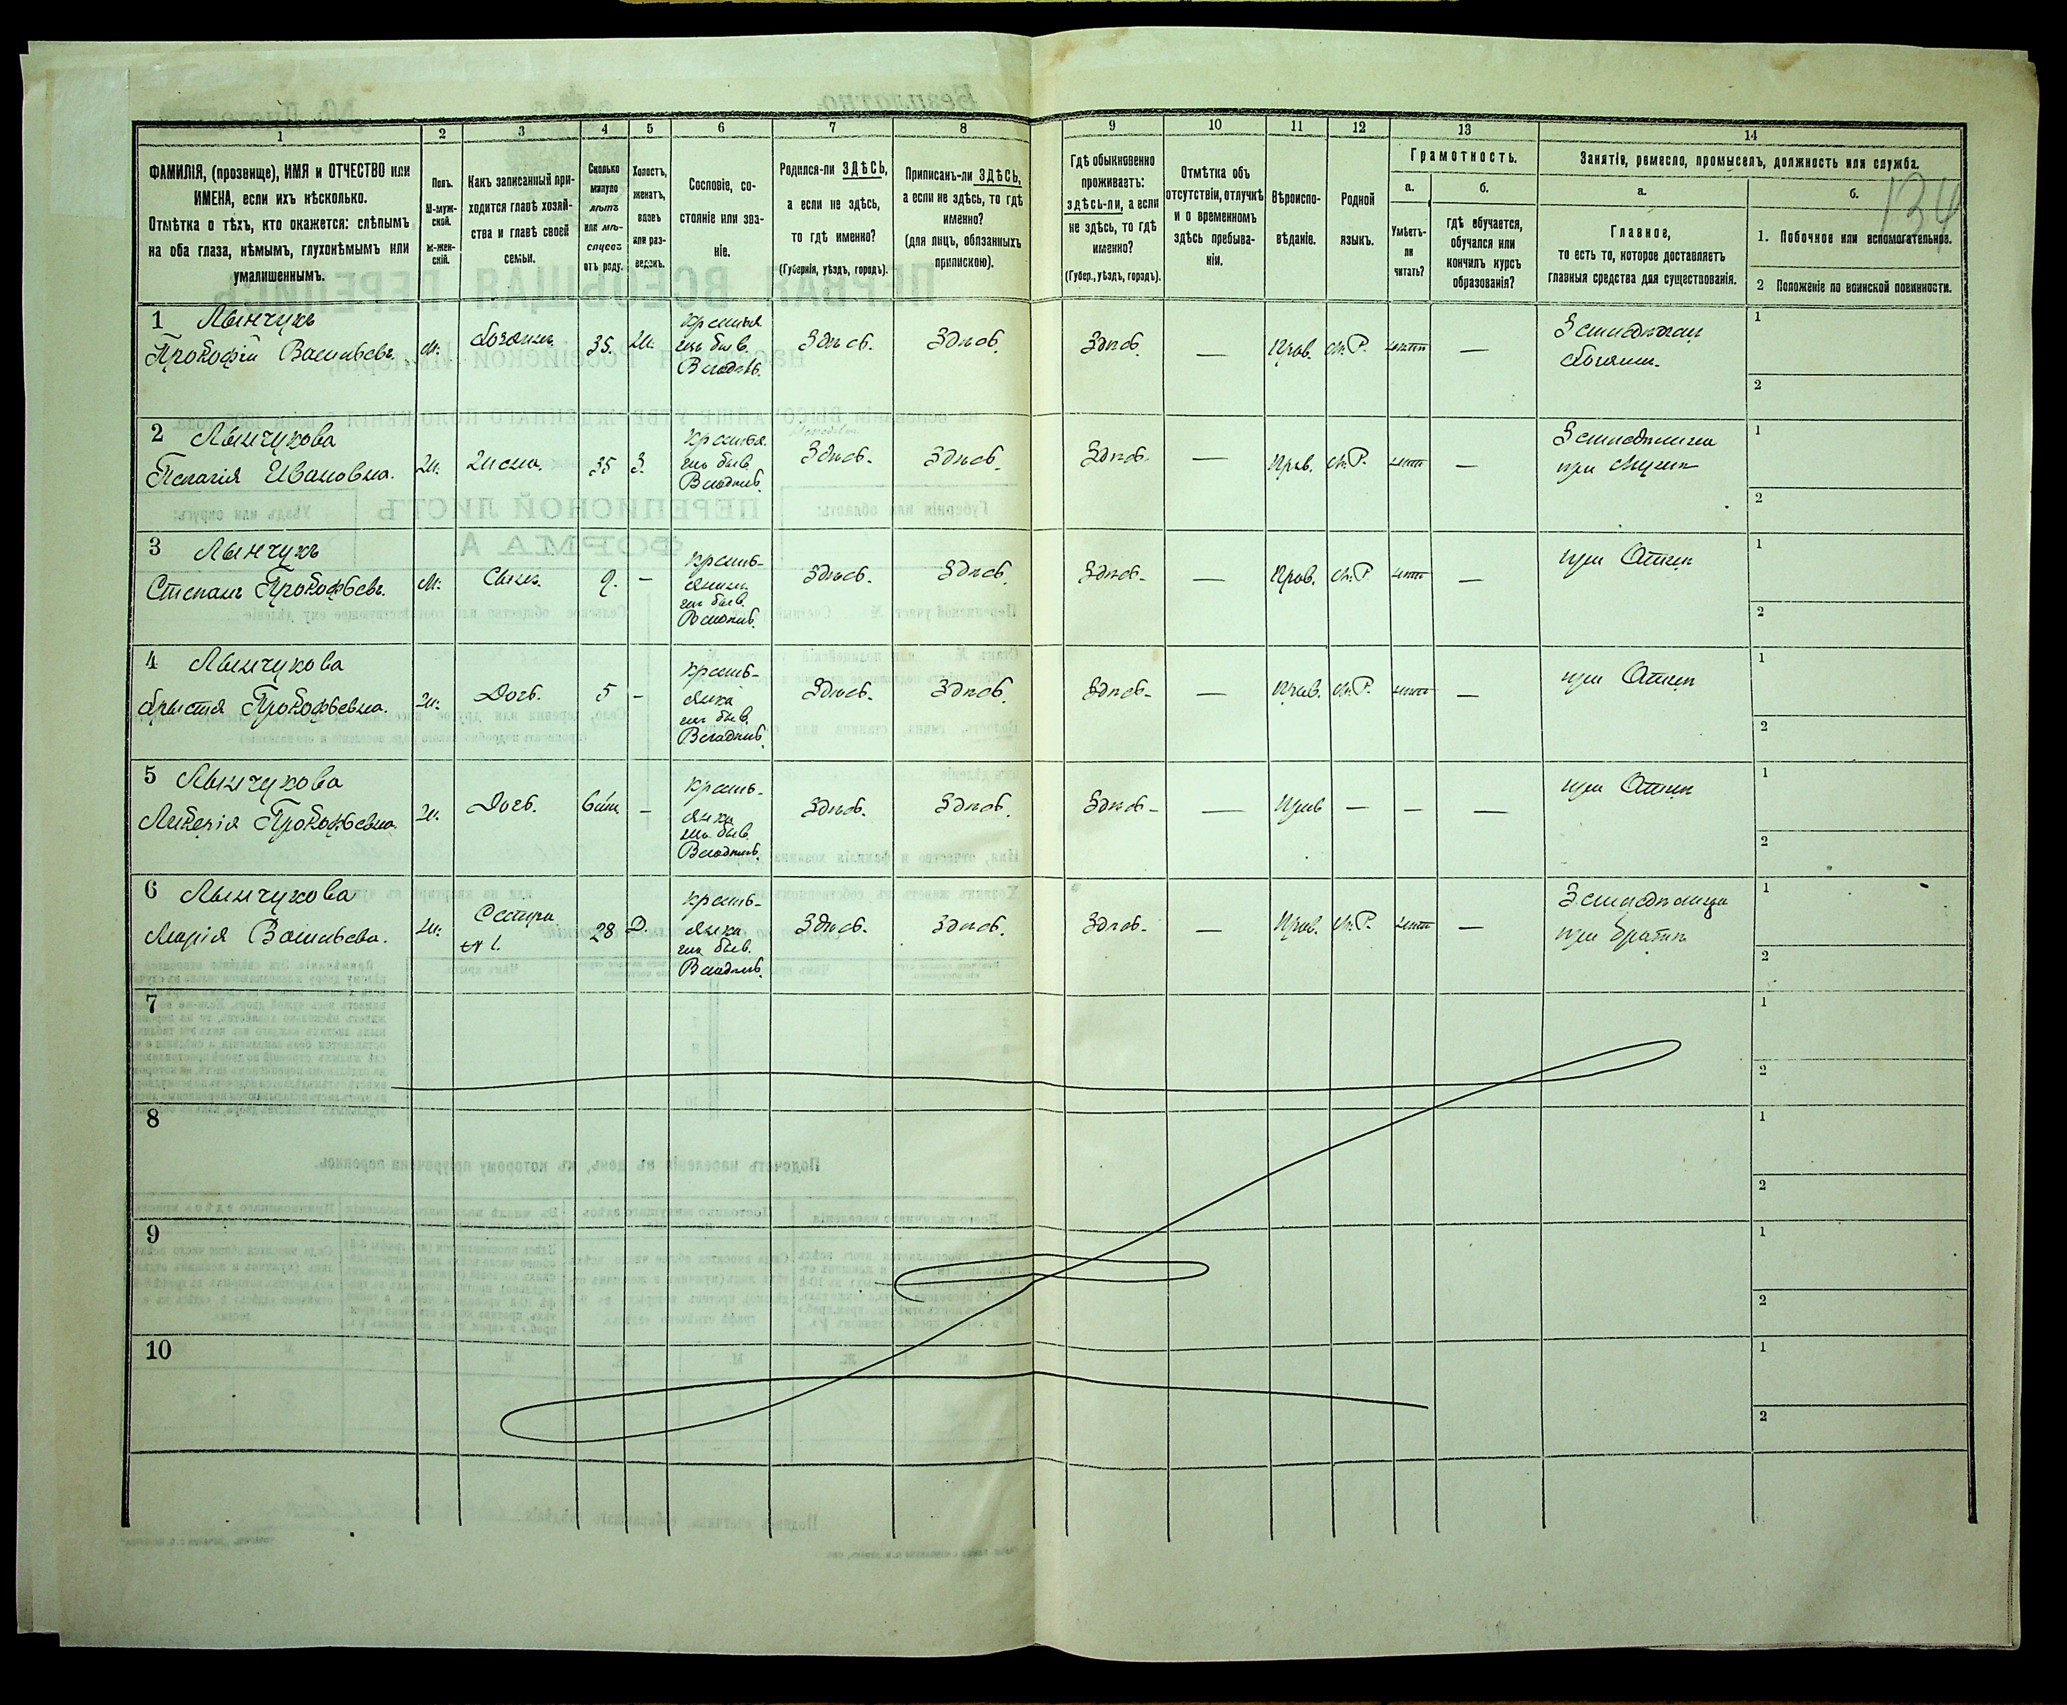 134
1 2 3 4 5 6 7 8 9 10 11 12 13 14
ФАМИЛІЯ, (прозвище), ИМЯ и ОТЧЕСТВО или
ИМЕНА, если ихъ нѣсколько.
Отмѣтка о тѣхъ, кто окажется: слѣпымъ
на оба глаза, нѣмымъ, глухонѣмымъ или
умалишеннымъ.
Полъ.
М-муж-
ской.
Ж-жен-
скій.
Какъ записанный при-
ходится главѣ хозяй-
ства и главѣ своей
семьи.
Сколько
минуло
лѣтъ
или мѣ-
сяцевъ
отъ роду.
Холостъ,
женатъ,
вдовъ
или раз-
веденъ.
Сословіе, со-
стояніе или зва-
ніе.
Родился-ли ЗДѢСЬ,
а если не здѣсь,
то гдѣ именно?
(Губернія, уѣздъ, городъ).
Приписанъ-ли ЗДѢСЬ,
а если не здѣсь, то гдѣ
именно?
(для лицъ, обязанныхъ
припискою).
Гдѣ обыкновенно
проживаетъ:
здѣсь-ли, а если
не здѣсь, то гдѣ
именно?
(Губер., уѣздъ, городъ).
Отмѣтка объ
отсутствіи, отлучкѣ
и о временномъ
здѣсь пребыва-
ніи.
Вѣроиспо-
вѣданіе.
Родной
языкъ.
Грамотность.
а.
Умѣетъ-
ли
читать?
б.
Гдѣ обучается,
обучался или
кончилъ курсъ
образованія?
Занятія, ремесло, промыселъ, должность или служба.
а.
Главное,
то есть то, которое доставляетъ
главныя средства для существованія.
б.
1. Побочное или вспомогательное.
2 Положеніе по воинской повинности.
1 Лынчукъ
Прокофій Васильевъ М. Хозяинъ 35. Ж.
изъ быв.
Владѣл.
Здѣсь. Здѣсь. Здѣсь — Прав. М.Р. нѣтъ —
Хозяинъ.
1
2
2 Лынчукова
Пелагія Ивановна. Ж. Жена. 35 З.
изъ быв.
Владѣл.
Здѣсь. Здѣсь. Здѣсь — Прав. М.Р. нѣтъ —
при мужѣ
1
2
3 Лынчукъ
Степанъ Прокофьевъ. М. Сынъ. 9. —
Крестьянинъ
изъ быв.
Владѣл.
Здѣсь. Здѣсь. Здѣсь. — Прав. М.Р нѣтъ —
при Отцѣ
1
2
4 Лынчукова
Христя Прокофьевна. Ж. Дочь. 5 —
Кресть-
янка
изъ быв.
Владѣл.
Здѣсь. Здѣсь. Здѣсь — Прав. М.Р. нѣтъ —
при Отцѣ
1
2
5 Лынчукова
Ликерія Прокофьевна. Ж. Дочь. —
Кресть-
янка
изъ быв.
Владѣл.
Здѣсь. Здѣсь. Здѣсь — Прав — — —
при Отцѣ
1
2
6 Лынчукова
Марія Васильева. Ж. Сестра
№ 1. 28 Д.
Кресть-
янка
изъ быв.
Владѣл.
Здѣсь. Здѣсь. Здѣсь. — Прав. М.Р. нѣтъ —
при братѣ
1
2
7
1
2
8
1
2
9
1
2
10
1
2